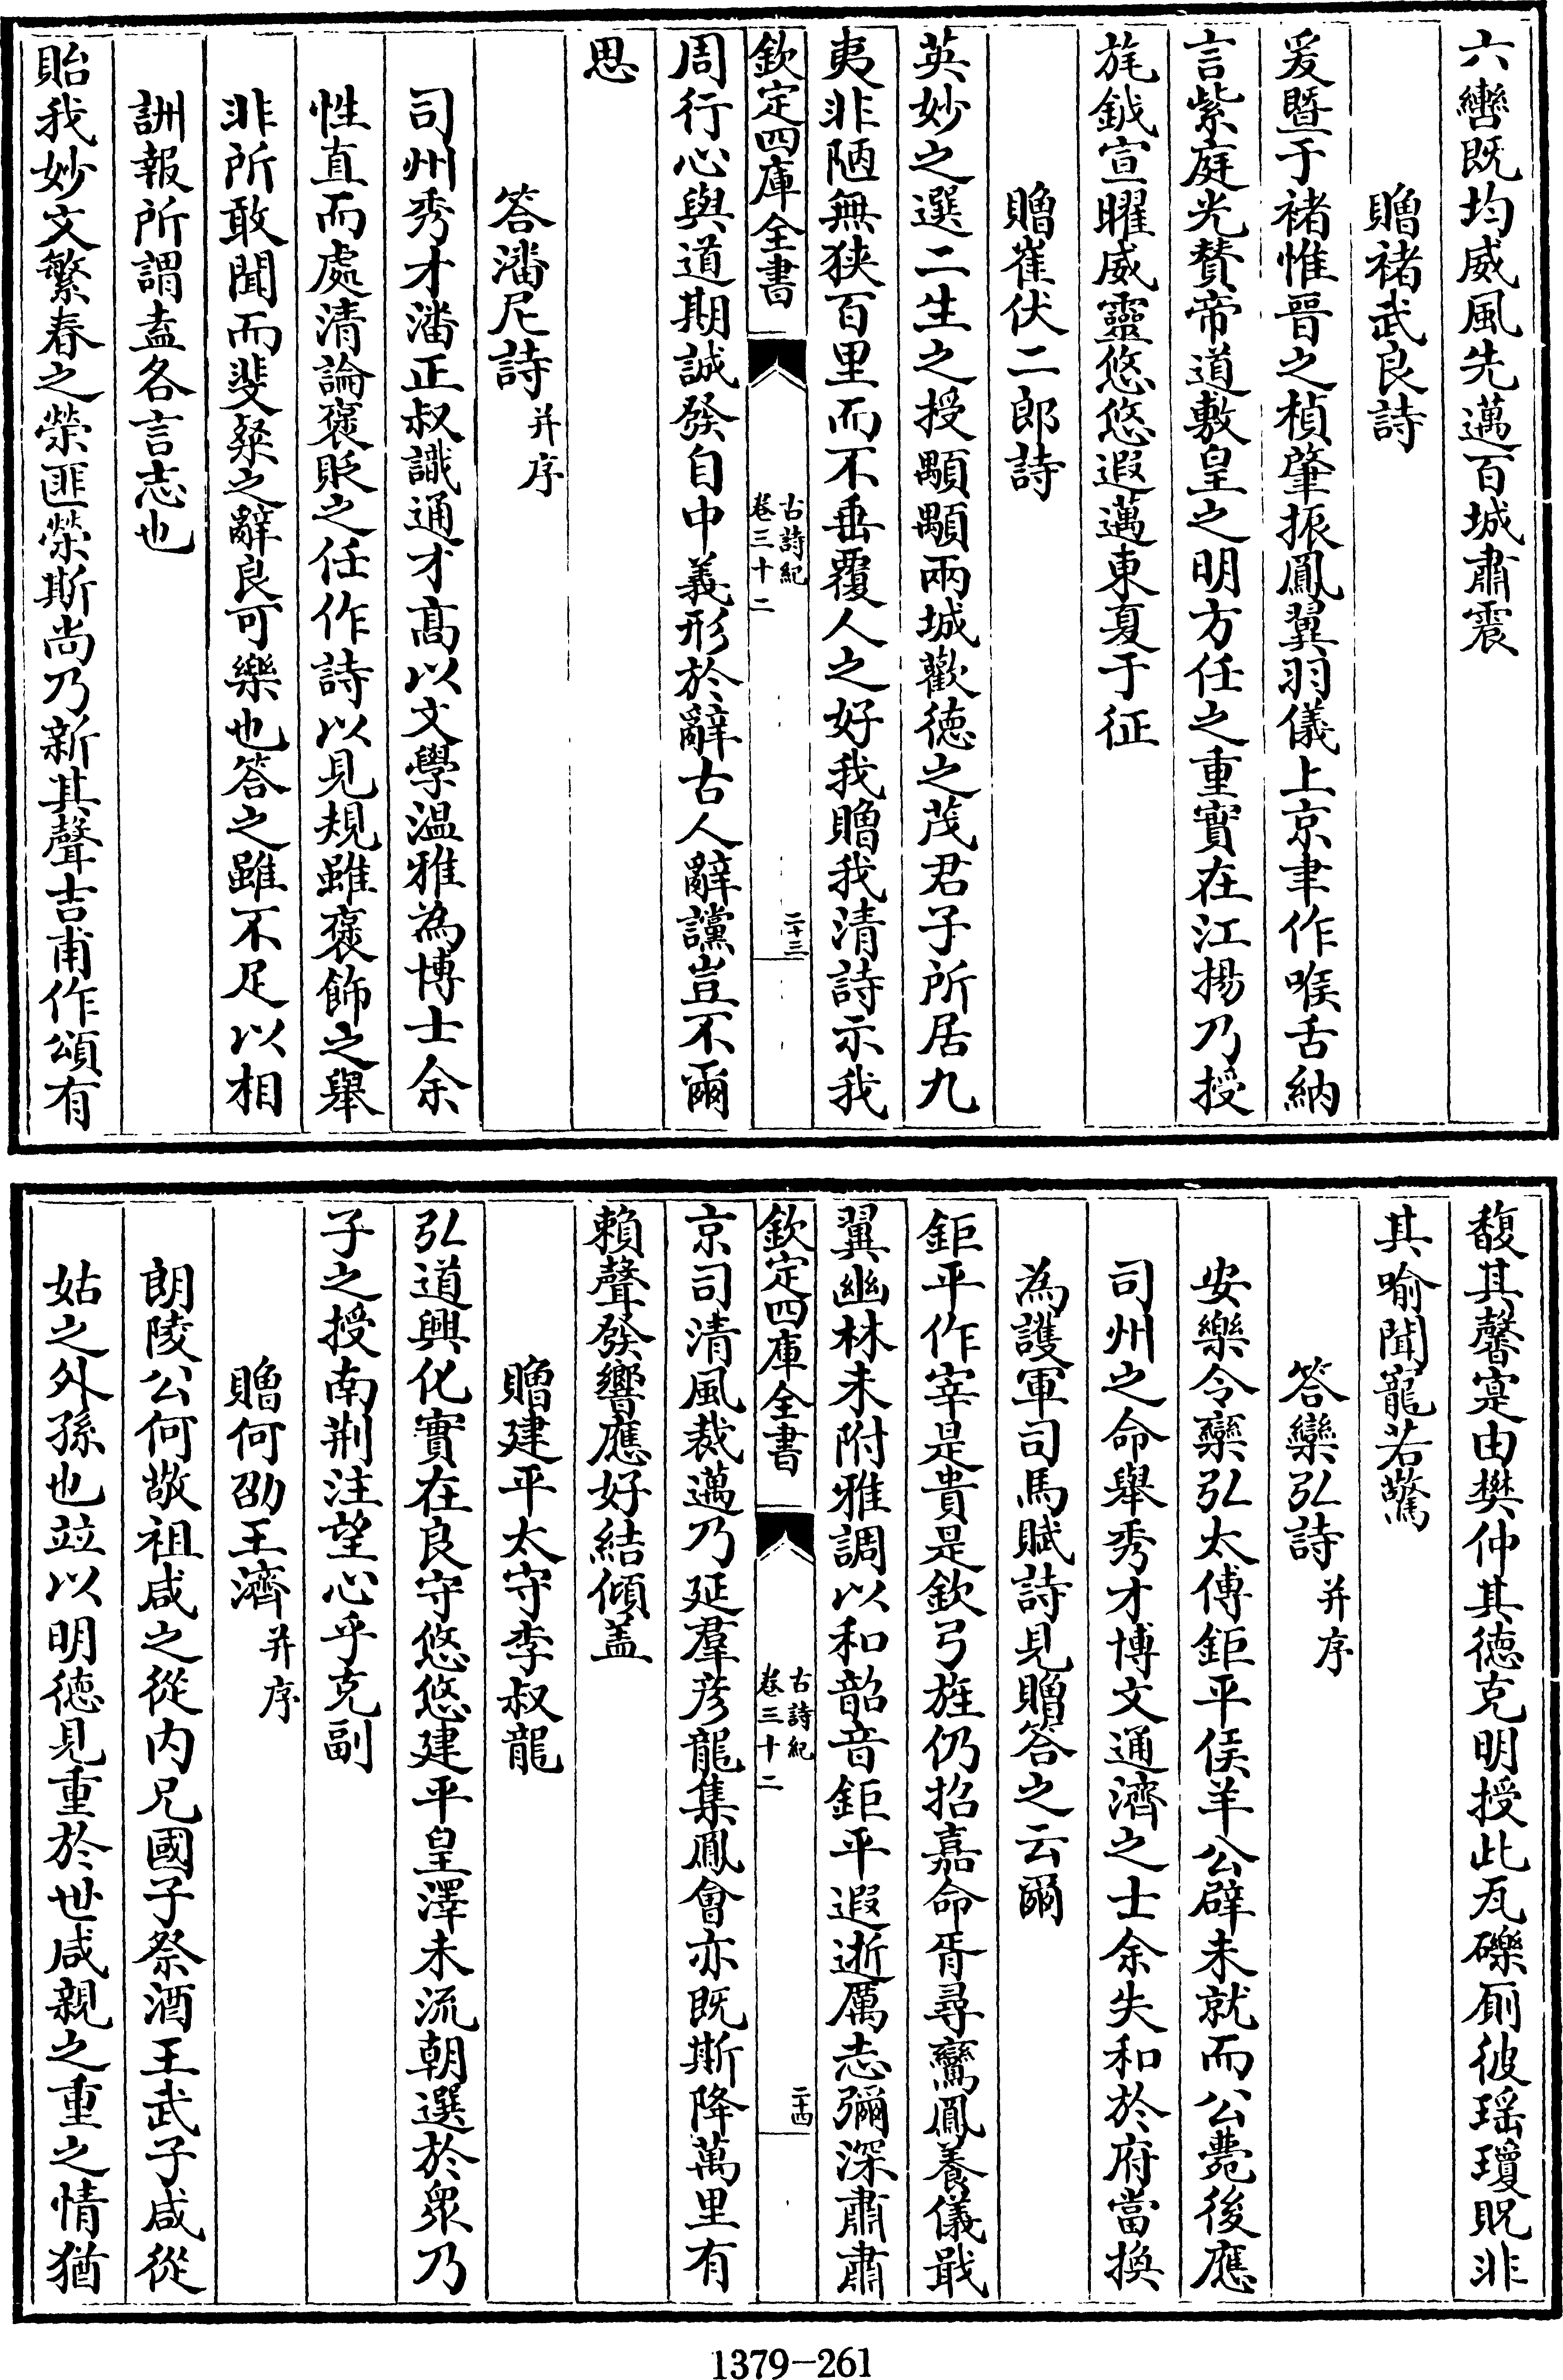 六轡既均威風先邁百城肅震
贈褚武良詩
爰暨于褚惟晉之楨肇振鳳翼羽儀上京聿作喉舌納
言紫庭光贊帝道敷皇之明方任之重實在江揚乃授
旄鉞宣曜威靈悠悠遐邁東夏于征
贈崔伏二郎詩
英妙之選二生之授顒顒兩城歡徳之茂君子所居九
夷非陋無狹百里而不垂覆人之好我贈我清詩示我
欽定四庫全書
古詩紀
卷三十二
二十三
周行心與道期誠發自中義形於辭古人辭讜豈不爾
思
答潘尼詩并序
司州秀才潘正叔識通才髙以文學温雅為博士余
性直而處清論褒貶之任作詩以見規雖褒飾之舉
非所敢聞而斐粲之辭良可樂也答之雖不足以相
詶報所謂盍各言志也
貽我妙文繁春之榮匪榮斯尚乃新其聲吉甫作頌有
馥其馨寔由樊仲其徳克明授此瓦礫廁彼瑶瓊貺非
其喻聞寵若驚
答欒弘詩并序
安樂令欒弘太傅鉅平侯羊公辟未就而公薨後應
司州之命舉秀才博文通濟之士余失和於府當換
為護軍司馬賦詩見贈答之云爾
鉅平作宰是貴是欽弓旌仍招嘉命胥尋鸞鳳養儀戢
翼幽林未附雅調以和韶音鉅平遐逝厲志彌深肅肅
欽定四庫全書
古詩紀
卷三十二
二十四
京司清風裁邁乃延羣彦龍集鳳會亦既斯降萬里有
賴聲發響應好結傾盖
贈建平太守李叔龍
弘道興化實在良守悠悠建平皇澤未流朝選於衆乃
子之授南荆注望心乎克副
贈何劭王濟并序
朗陵公何敬祖咸之從内兄國子祭酒王武子咸從
姑之外孫也竝以明徳見重於世咸親之重之情猶
1379-261